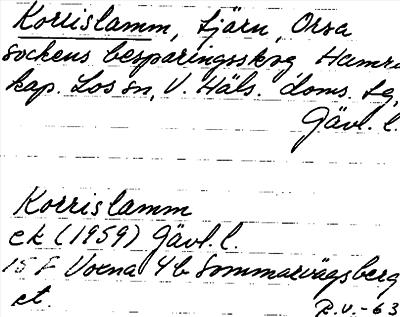 Korrislamm, tjärn, Orsa
sockens besparingsskog Hamra
kap. Los sn, V. Häls. doms. lg,
Gävl. l.
Korrislamm
ek (1959) Gävl. l.
15 F Voxna 4 b Sommarvägsberg
et.
R.V.-63